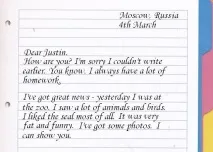 Moscow, Russia
4th March
Dear Justin.
How are you? I'm sorry I couldn't write
earlier. You know, I always have a lot of
homework.
I've got great news - yesterday I was at
the zoo. I saw a lot of animals and birds.
I liked the seal most of all. It was very
fat and funny. I've got some photos. I
can show you.